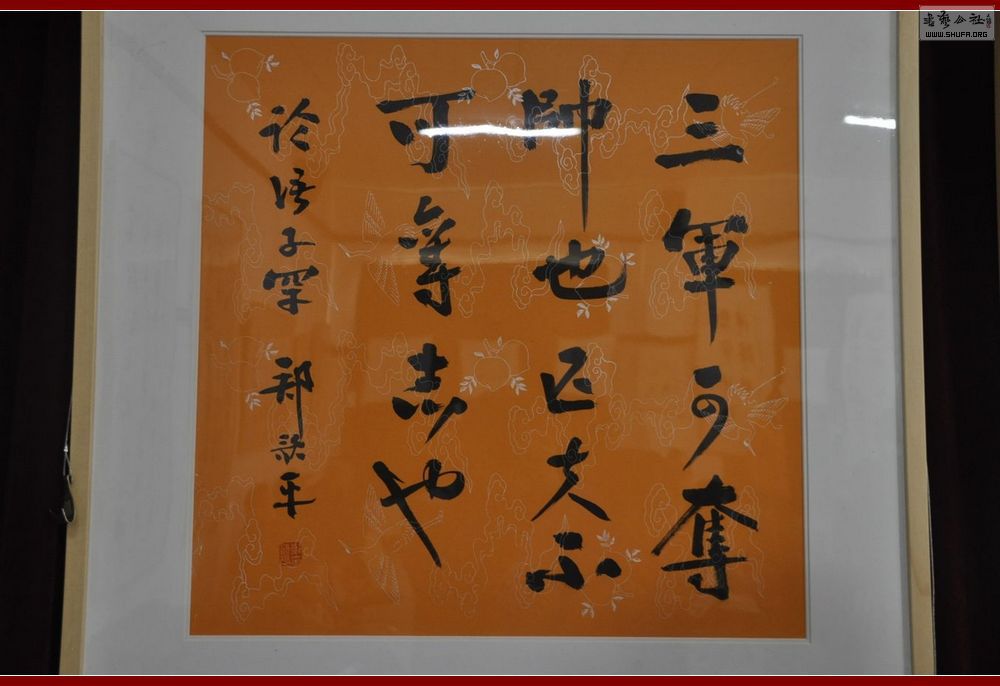 三軍可奪
帥也匹夫不
可奪志也
论语子罕 郑平
書藝公社
WWW.SHUFA.ORG